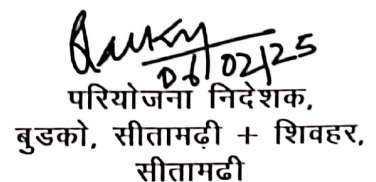 06/02/25
परियोजना निदेशक,
बुडको, सीतामढ़ी + शिवहर,
सीतामढी